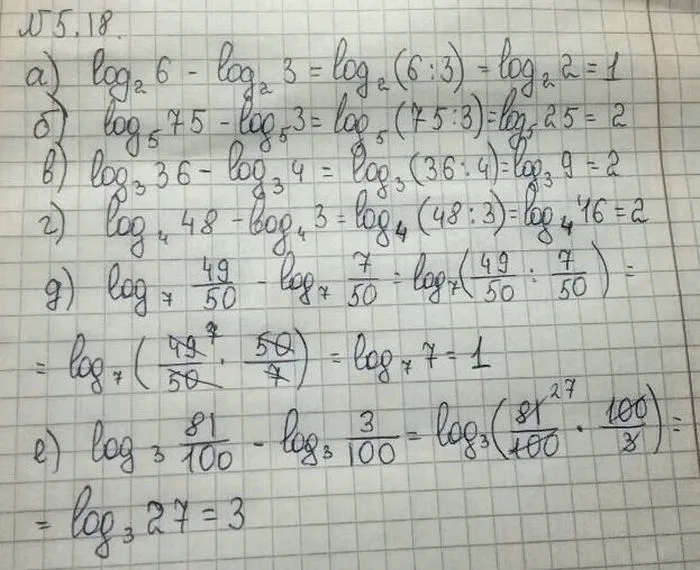 №5.18.
а) log₂ 6 - log₂ 3 = log₂ (6 : 3) = log₂ 2 = 1
б) log₅ 75 - log₅ 3 = log₅ (75 : 3) = log₅ 25 = 2
в) log₃ 36 - log₃ 4 = log₃ (36 : 4) = log₃ 9 = 2
г) log₄ 48 - log₄ 3 = log₄ (48 : 3) = log₄ 16 = 2
д) log₇ 49/50 - log₇ 7/50 = log₇ (49/50 : 7/50) =
= log₇ (49⁷/50 · 50/7) = log₇ 7 = 1
е) log₃ 81/100 - log₃ 3/100 = log₃ (81²⁷/100 · 100/3) =
= log₃ 27 = 3